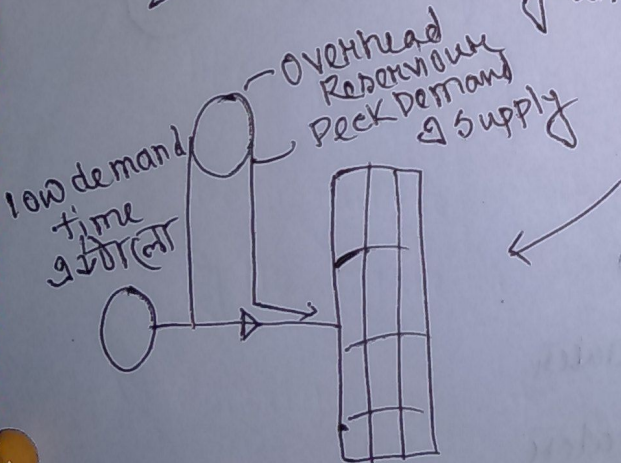 Overhead
Reservour
Peck Demand
এ supply
low demand
time
এ উঠালো